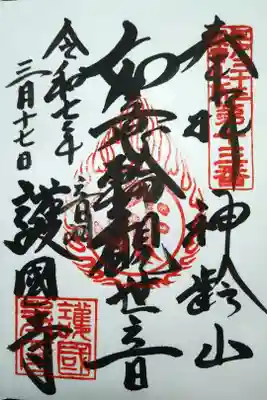 奉拝
神齢山
如意輪観世音
護國寺
令和七年
三月十七日
護國